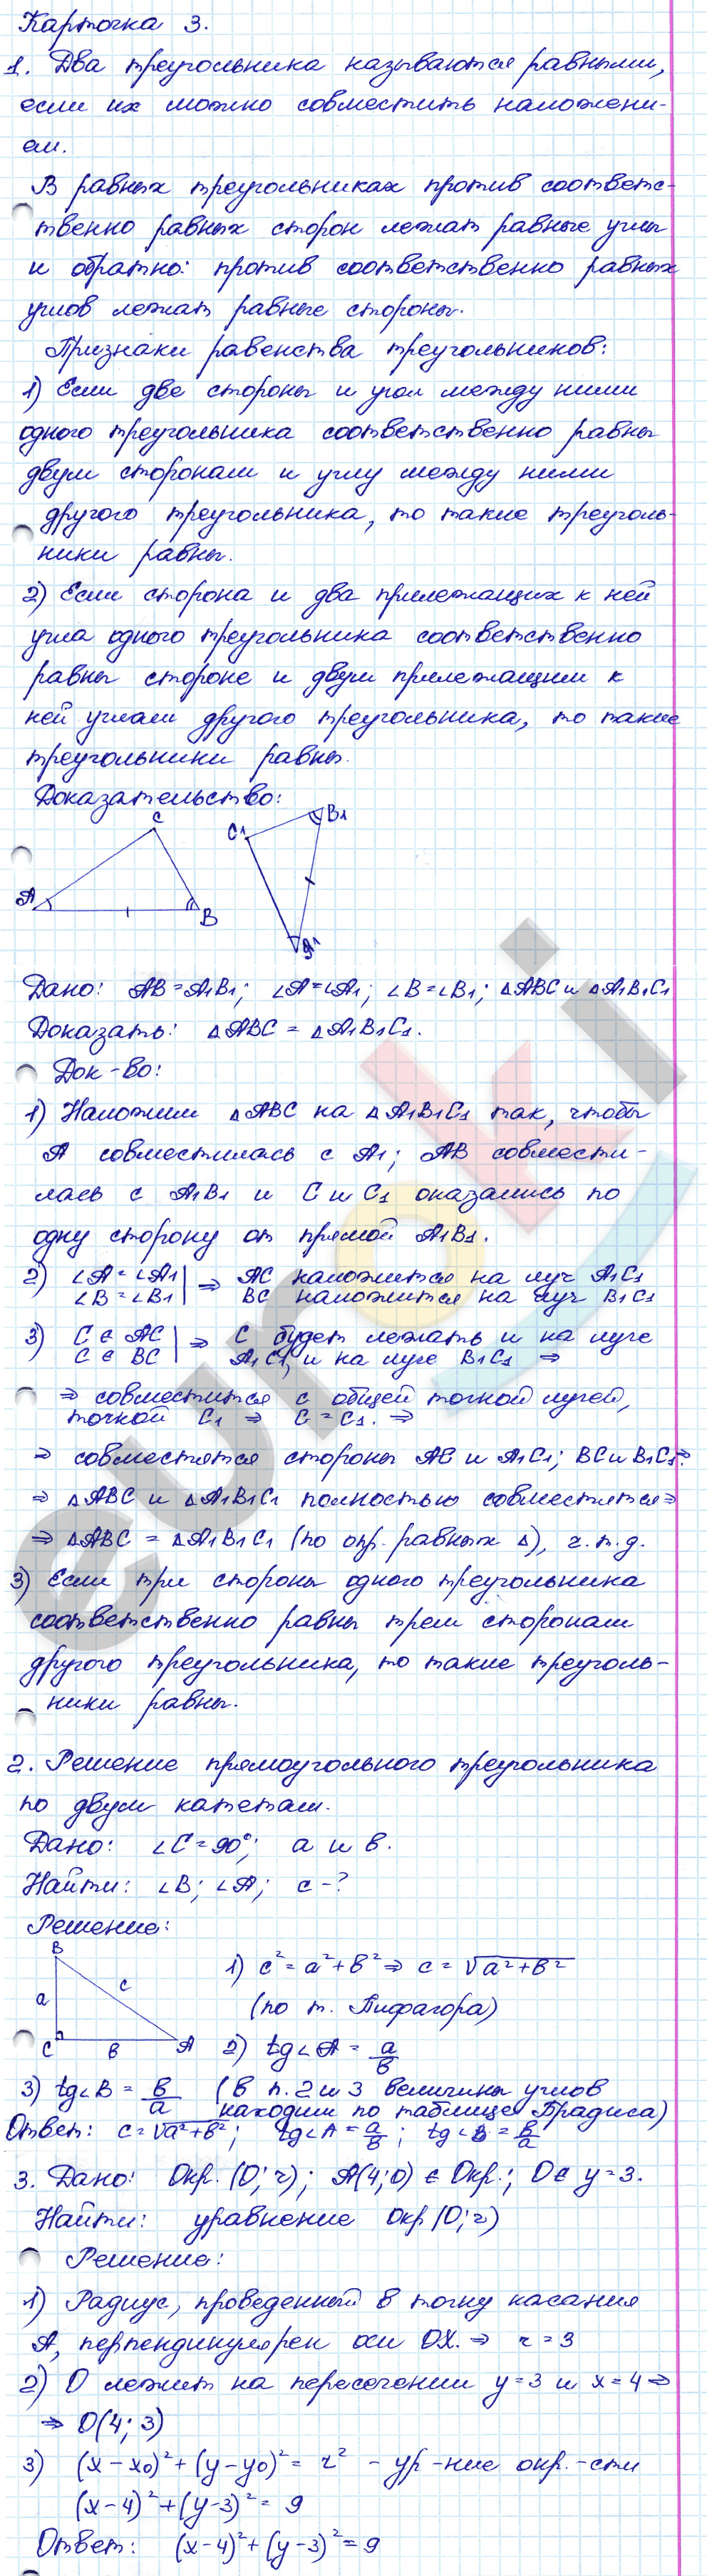 Карточка 3.
1. Два треугольника называются равными,
если их можно совместить наложени-
ем.
В равных треугольниках против соответс-
твенно равных сторон лежат равные углы
и обратно: против соответственно равных
углов лежат равные стороны.
Признаки равенства треугольников:
1) Если две стороны и угол между ними
одного треугольника соответственно равны
двум сторонам и углу между ними
другого треугольника, то такие треуголь-
ники равны.
2) Если сторона и два прилежащих к ней
угла одного треугольника соответственно
равны стороне и двум прилежащим к
ней углам другого треугольника, то такие
треугольники равны.
Доказательство:
C
A
B
C1
B1
A1
Дано: AB=A1B1; ∠A=∠A1; ∠B=∠B1; △ABC и △A1B1C1
Доказать: △ABC = △A1B1C1.
Док-во:
1) Наложим △ABC на △A1B1C1 так, чтобы
A совместилась с A1; AB совмести-
лась с A1B1 и C и C1 оказались по
одну сторону от прямой A1B1.
2) ∠A=∠A1 | ⇒ AC наложится на луч A1C1
∠B=∠B1 | BC наложится на луч B1C1
3) C ∈ AC | ⇒ C будет лежать и на луче
C ∈ BC | A1C1, и на луче B1C1 ⇒
⇒ совместится с общей точкой лучей,
точкой C1 ⇒ C = C1. ⇒
⇒ совместятся стороны AC и A1C1; BC и B1C1 ⇒
⇒ △ABC и △A1B1C1 полностью совместятся ⇒
⇒ △ABC = △A1B1C1 (по опр. равных △), ч.т.д.
3) Если три стороны одного треугольника
соответственно равны трем сторонам
другого треугольника, то такие треуголь-
ники равны.
2. Решение прямоугольного треугольника
по двум катетам.
Дано: ∠C=90°; a и b.
Найти: ∠B; ∠A; c-?
Решение:
B
a
c
C
b
A
1) c²=a²+b² ⇒ c = √a²+b²
(по т. Пифагора)
2) tg∠A = a/b
3) tg∠B = b/a (в п. 2 и 3 величины углов
находим по таблице Брадиса)
Ответ: c=√a²+b²; tg∠A=a/b; tg∠B=b/a
3. Дано: Окр. (O; r); A(4;0) ∈ Окр.; O ∈ y=3.
Найти: уравнение Окр (O; r)
Решение:
1) Радиус, проведенный в точку касания
A, перпендикулярен оси OX. ⇒ r=3
2) O лежит на пересечении y=3 и x=4 ⇒
⇒ O(4; 3)
3) (x-x0)²+(y-y0)²= r² - ур-ние окр.-сти
(x-4)²+(y-3)²= 9
Ответ: (x-4)²+(y-3)²=9
euroki